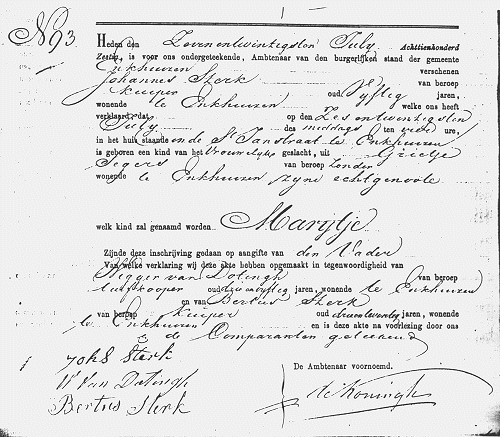 No 93
Heden den Zevenentwintigsten July Achttienhonderd
Zestig, is voor ons ondergeteekende, Ambtenaar van den burgerlijken stand der gemeente
Enkhuizen verschenen
Johannes Sterk van beroep
Kuiper oud vyftig jaren,
wonende te Enkhuizen welke ons heeft
verklaard, dat op den Zesentwintigsten
July des middags ten vier ure,
in het huis staande en de St Janstraat te Enkhuizen
is geboren een kind van het vrouwelyke geslacht, uit Grietje
Segers van beroep zonder
wonende te Enkhuizen zyne echtgenoote
welk kind zal genaamd worden Marijtje
Zijnde deze inschrijving gedaan op aangifte van den Vader
Van welke verklaring wij deze akte hebben opgemaakt in tegenwoordigheid van
van beroep
oud jaren, wonende te Enkhuizen
en van Bertus Sterk
van beroep Kuiper oud jaren, wonende
te Enkhuizen en is deze akte na voorlezing door ons
de Comparanten geteekend
Joh Sterk
W Van Dotingh
Bertus Sterk
De Ambtenaar voornoemd.
de Koningh